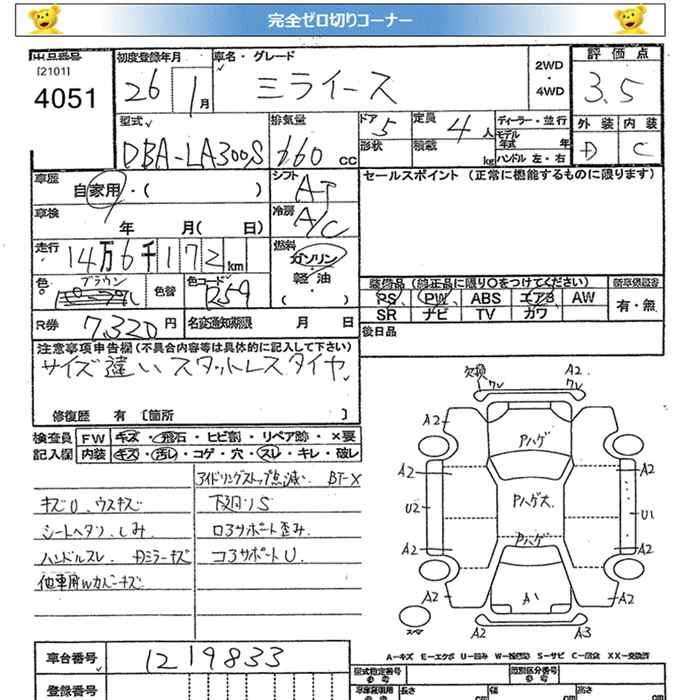 完全ゼロ切りコーナー
出品番号
[2101]
4051
初度登録年月
26 1月
車名・グレード
ミライース
2WD
・
4WD
評価点
3.5
外装 内装
D C
型式
DBA-LA300S
排気量
660 cc
ドア 5
形状
定員 4人
積載 kg
ディーラー・並行
モデル
年式 年
ハンドル 左・右
車歴
自家用・( )
シフト
AT
セールスポイント (正常に機能するものに限ります)
車検
年 月( 日)
冷房
A/C
走行
14万6千172km
燃料
ガソリン
軽油
( )
色
ブラウン
色替
色コード
R59
装備品 (純正品に限り○をつけてください)
PS PW ABS エアB AW
SR ナビ TV カワ
新車保証書
有・無
R券 7,320円
名変通知期限 月 日
後日品
注意事項申告欄(不具合内容等は具体的に記入して下さい)
サイズ違いスタットレスタイヤ
修復歴 有 [箇所 ]
検査員
記入欄
FW キズ・飛石・ヒビ割・リペア跡・×要
内装 キズ・汚レ・コゲ・穴・スレ・キレ・破レ
アイドリングストップ点滅 BT-X
キズU、ウスキズ
下廻りS
シートヘタリ、しみ
ロアサポート歪み
ハンドルスレ、Dミラーキズ
コアサポートU
他車用Wカバーキズ
欠損
ワレ
A2
ワレ
A2
A2
Pハゲ
A2
A2
U2
Pハゲ大
U1
A2
Pハゲ
A2
A2
A1
A2
スペア
A2
A3
A-キズ E-エクボ U-凹み W-補修跡 S-サビ C-腐食 XX-交換済
車台番号 1219833
登録番号
型式指定番号
参考
類別区分番号
参考
車庫証明用
参考
長さ cm
幅 cm
高さ cm